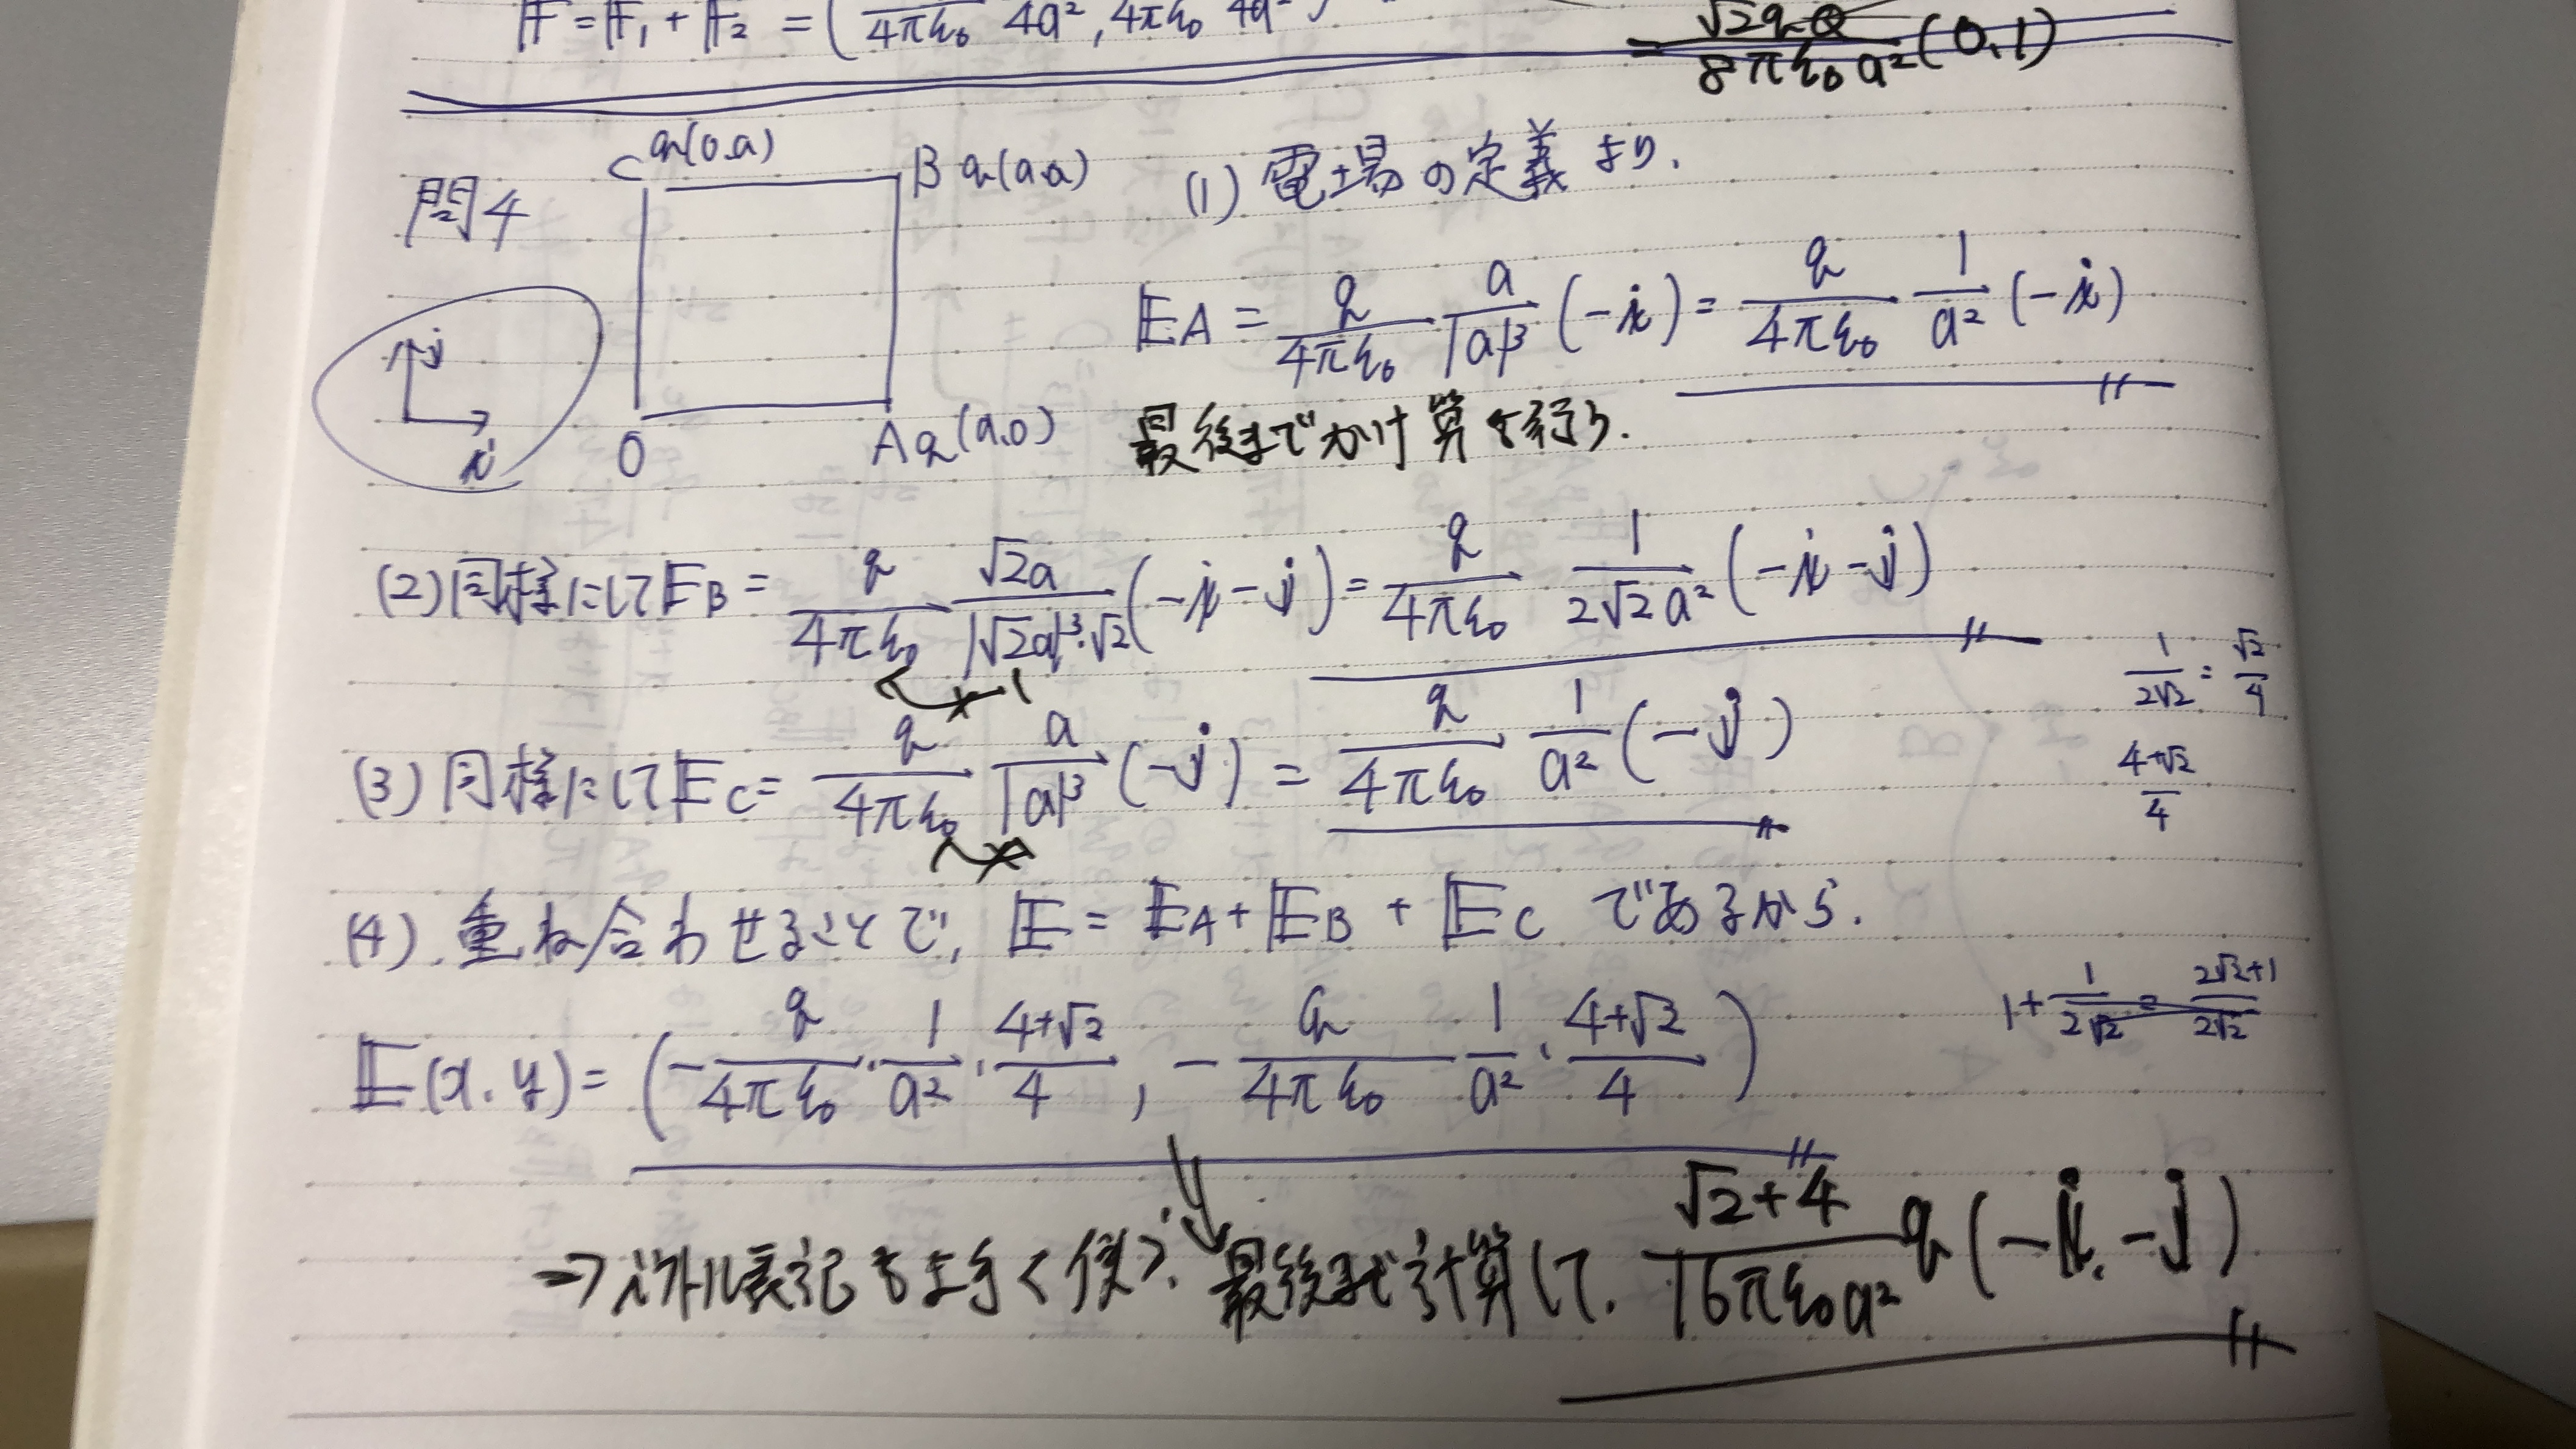 F = F₁ + F₂ = ( 4πε₀ 4a², 4πε₀ 4a²
= √2qQ / 8πε₀a² (0, 1)
問4
C q(0.a)
B q(a.a)
O
A q(a.0)
j
i
(1) 電場の定義より.
EA = q/4πε₀ a/|a|³ (-i) = q/4πε₀ 1/a² (-i)
最後までかけ算を行う.
(2) 同様にしてEB = q/4πε₀ √2a/|√2a|³·√2 (-i-j) = q/4πε₀ 1/2√2a² (-i-j)
1/2√2 = √2/4
(3) 同様にしてEC = q/4πε₀ a/|a|³ (-j) = q/4πε₀ 1/a² (-j)
4+√2/4
(4) 重ね合わせることで, E = EA + EB + EC であるから.
1 + 1/2√2 = 2√2+1/2√2
E(x.y) = (-q/4πε₀ · 1/a² · 4+√2/4 , -q/4πε₀ 1/a² · 4+√2/4)
⇒ベクトル表記も上手く使う.
最後まで計算して. √2+4/16πε₀a² q (-i, -j)